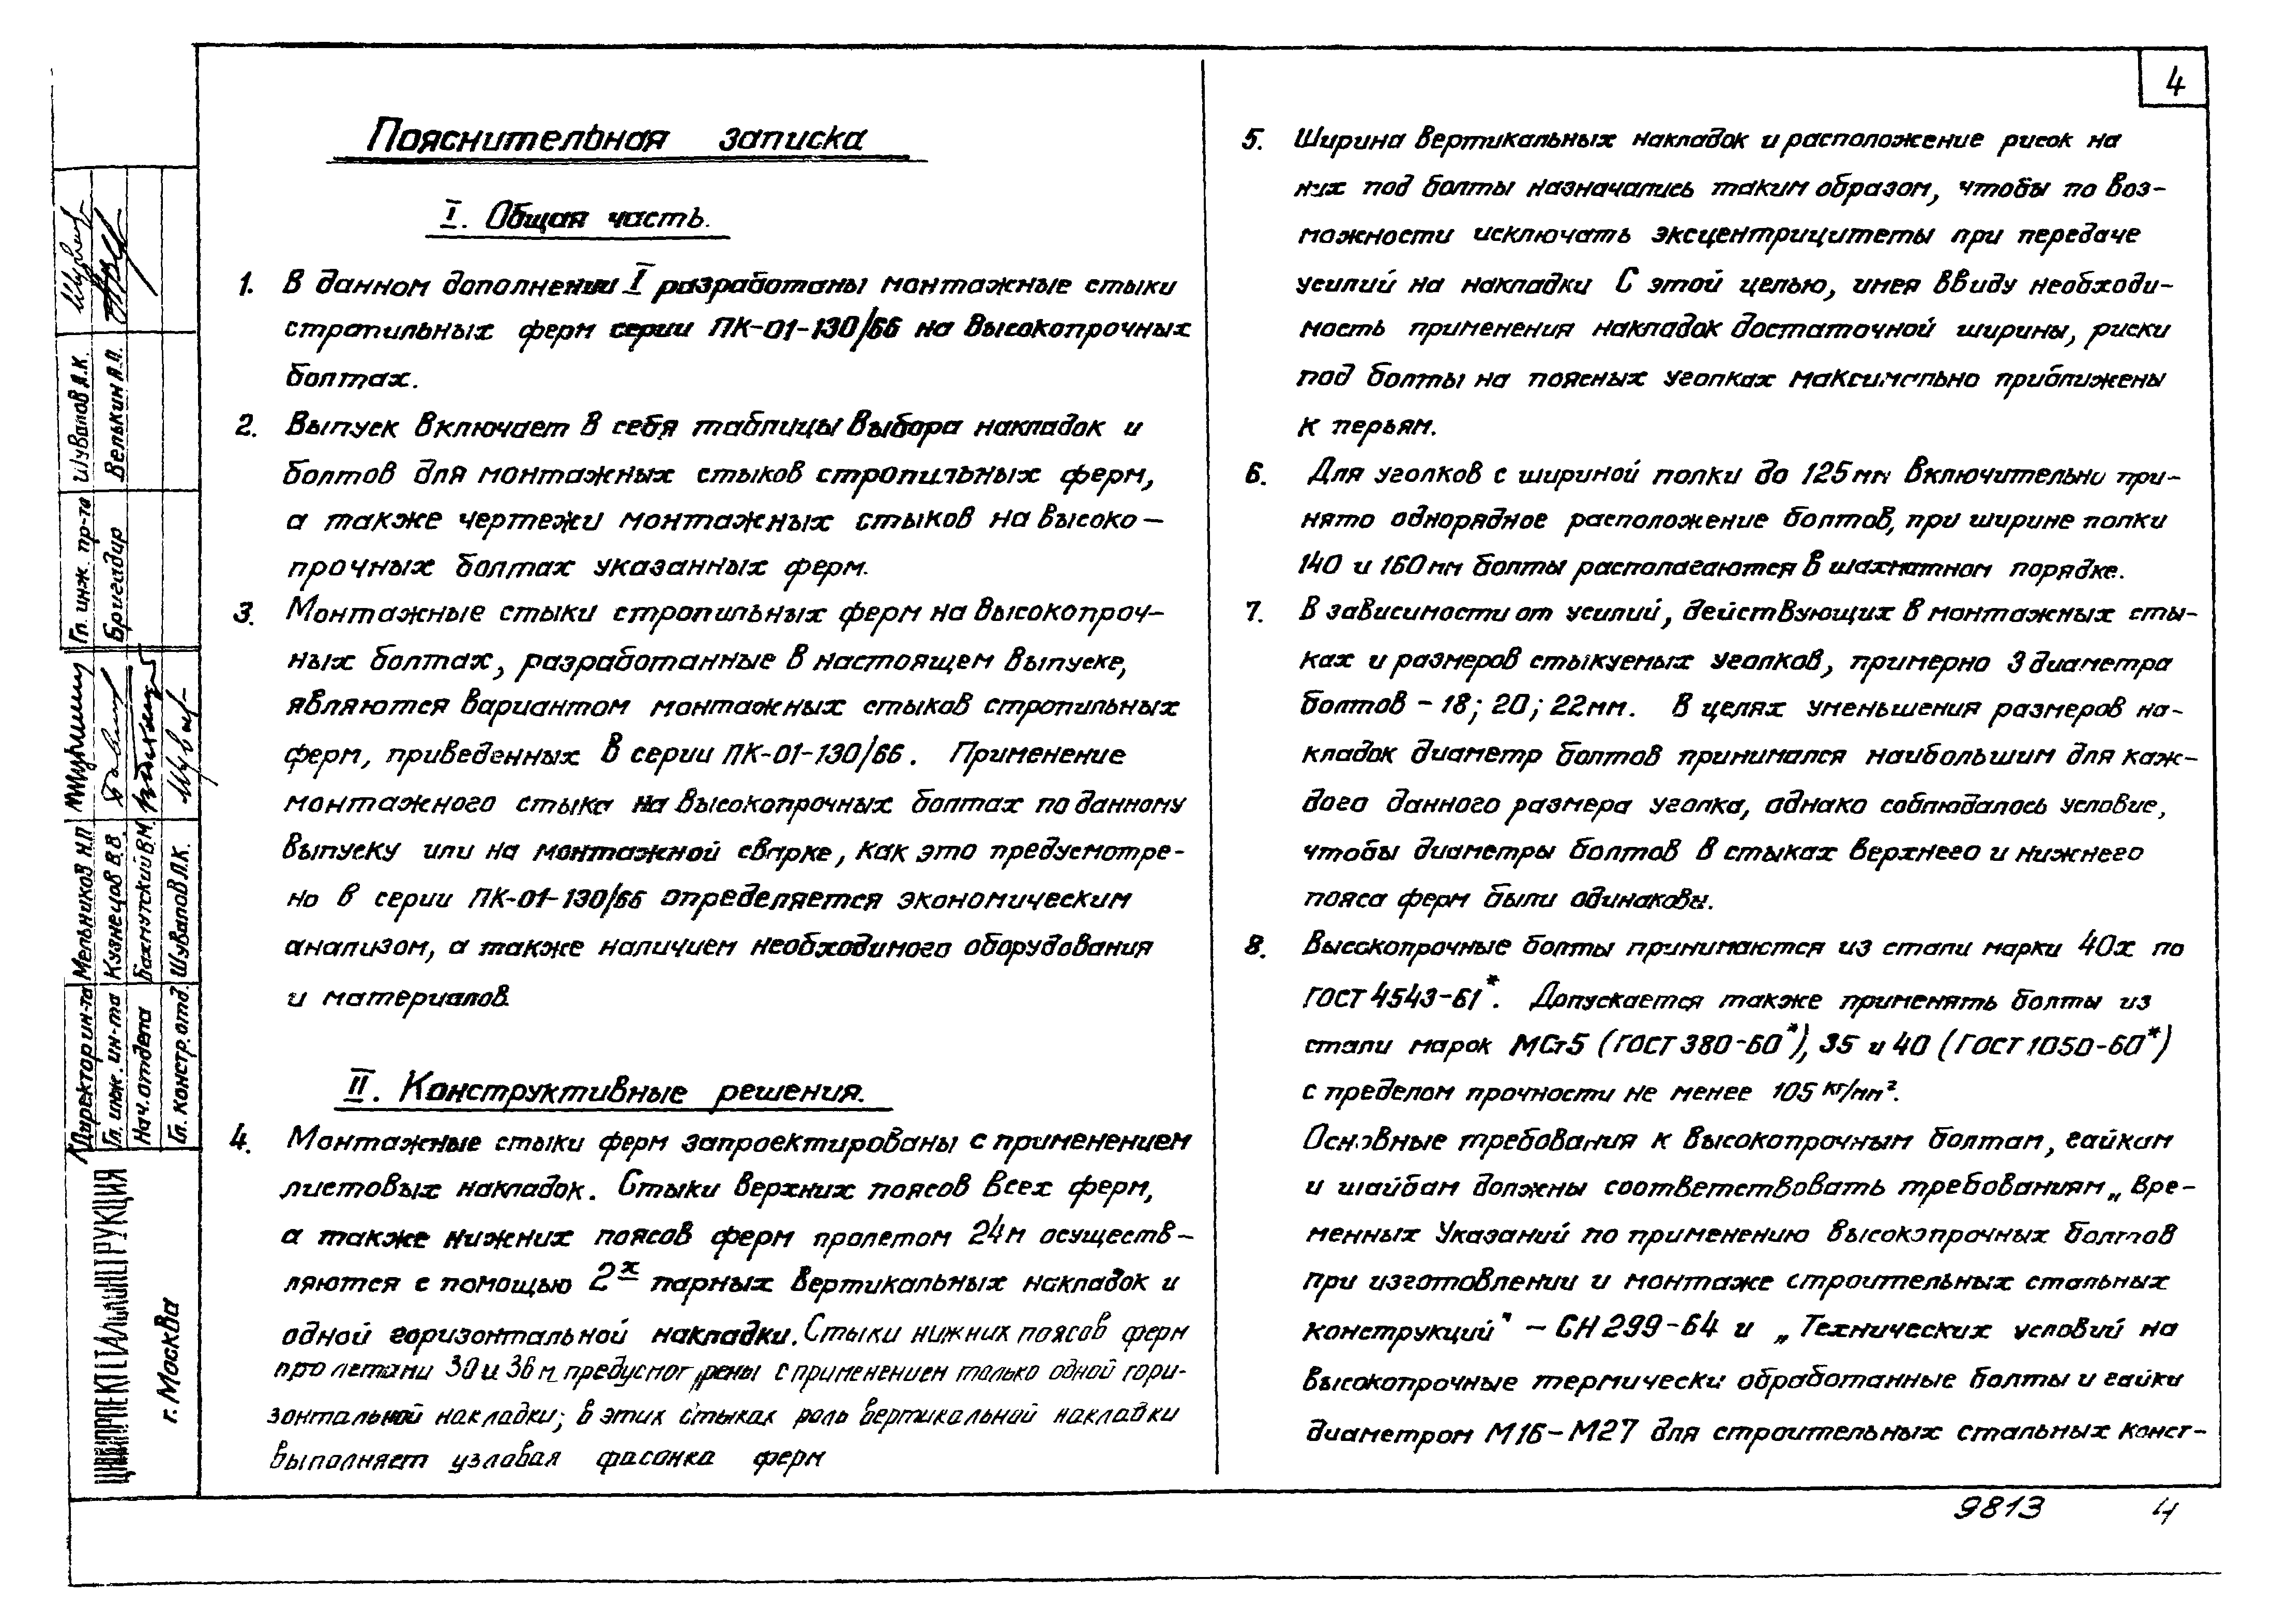 4
Пояснительная записка
I. Общая часть.
1. В данном дополнении I разработаны монтажные стыки
стропильных ферм серии ПК-01-130/66 на высокопрочных
болтах.
2. Выпуск включает в себя таблицы выбора накладок и
болтов для монтажных стыков стропильных ферм,
а также чертежи монтажных стыков на высоко-
прочных болтах указанных ферм.
3. Монтажные стыки стропильных ферм на высокопроч-
ных болтах, разработанные в настоящем выпуске,
являются вариантом монтажных стыков стропильных
ферм, приведенных в серии ПК-01-130/66. Применение
монтажного стыка на высокопрочных болтах по данному
выпуску или на монтажной сварке, как это предусмотре-
но в серии ПК-01-130/66 определяется экономическим
анализом, а также наличием необходимого оборудования
и материалов
II. Конструктивные решения.
4. Монтажные стыки ферм запроектированы с применением
листовых накладок. Стыки верхних поясов всех ферм,
а также нижних поясов ферм пролетом 24м осуществ-
ляются с помощью 2х парных вертикальных накладок и
одной горизонтальной накладки. Стыки нижних поясов ферм
пролетами 30 и 36м предусмотрены с применением только одной гори-
зонтальной накладки; в этих стыках роль вертикальной накладки
выполняет узловая фасонка ферм
5. Ширина вертикальных накладок и расположение рисок на
них под болты назначались таким образом, чтобы по воз-
можности исключать эксцентрицитеты при передаче
усилий на накладки С этой целью, имея ввиду необходи-
мость применения накладок достаточной ширины, риски
под болты на поясных уголках максимально приближены
к перьям.
6. Для уголков с шириной полки до 125мм включительно при-
нято однорядное расположение болтов, при ширине полки
140 и 160мм болты располагаются в шахматном порядке.
7. В зависимости от усилий, действующих в монтажных сты-
ках и размеров стыкуемых уголков, примерно 3 диаметра
болтов - 18; 20; 22мм. В целях уменьшения размеров на-
кладок диаметр болтов принимался наибольшим для каж-
дого данного размера уголка, однако соблюдалось условие,
чтобы диаметры болтов в стыках верхнего и нижнего
пояса ферм были одинаковы.
8. Высокопрочные болты принимаются из стали марки 40х по
ГОСТ 4543-61*. Допускается также применять болты из
стали марок МСт5 (ГОСТ 380-60*), 35 и 40 (ГОСТ 1050-60*)
с пределом прочности не менее 105 кг/мм².
Основные требования к высокопрочным болтам, гайкам
и шайбам должны соответствовать требованиям „Вре-
менных Указаний по применению высокопрочных болтов
при изготовлении и монтаже строительных стальных
конструкций" - СН 299-64 и „Технических условий на
высокопрочные термически обработанные болты и гайки
диаметром М16-М27 для строительных стальных конст-
Гл. инж. пр-та Шувалов Л.К.
Бригадир Велькин А.П.
Директор ин-та Мельников Н.П
Гл. инж. ин-та Кузнецов В.В.
Нач. отдела Бахмутский В.М.
Гл. констр. отд. Шувалов Л.К.
ЦНИИПРОЕКТСТАЛЬКОНСТРУКЦИЯ
г. Москва
9813 4